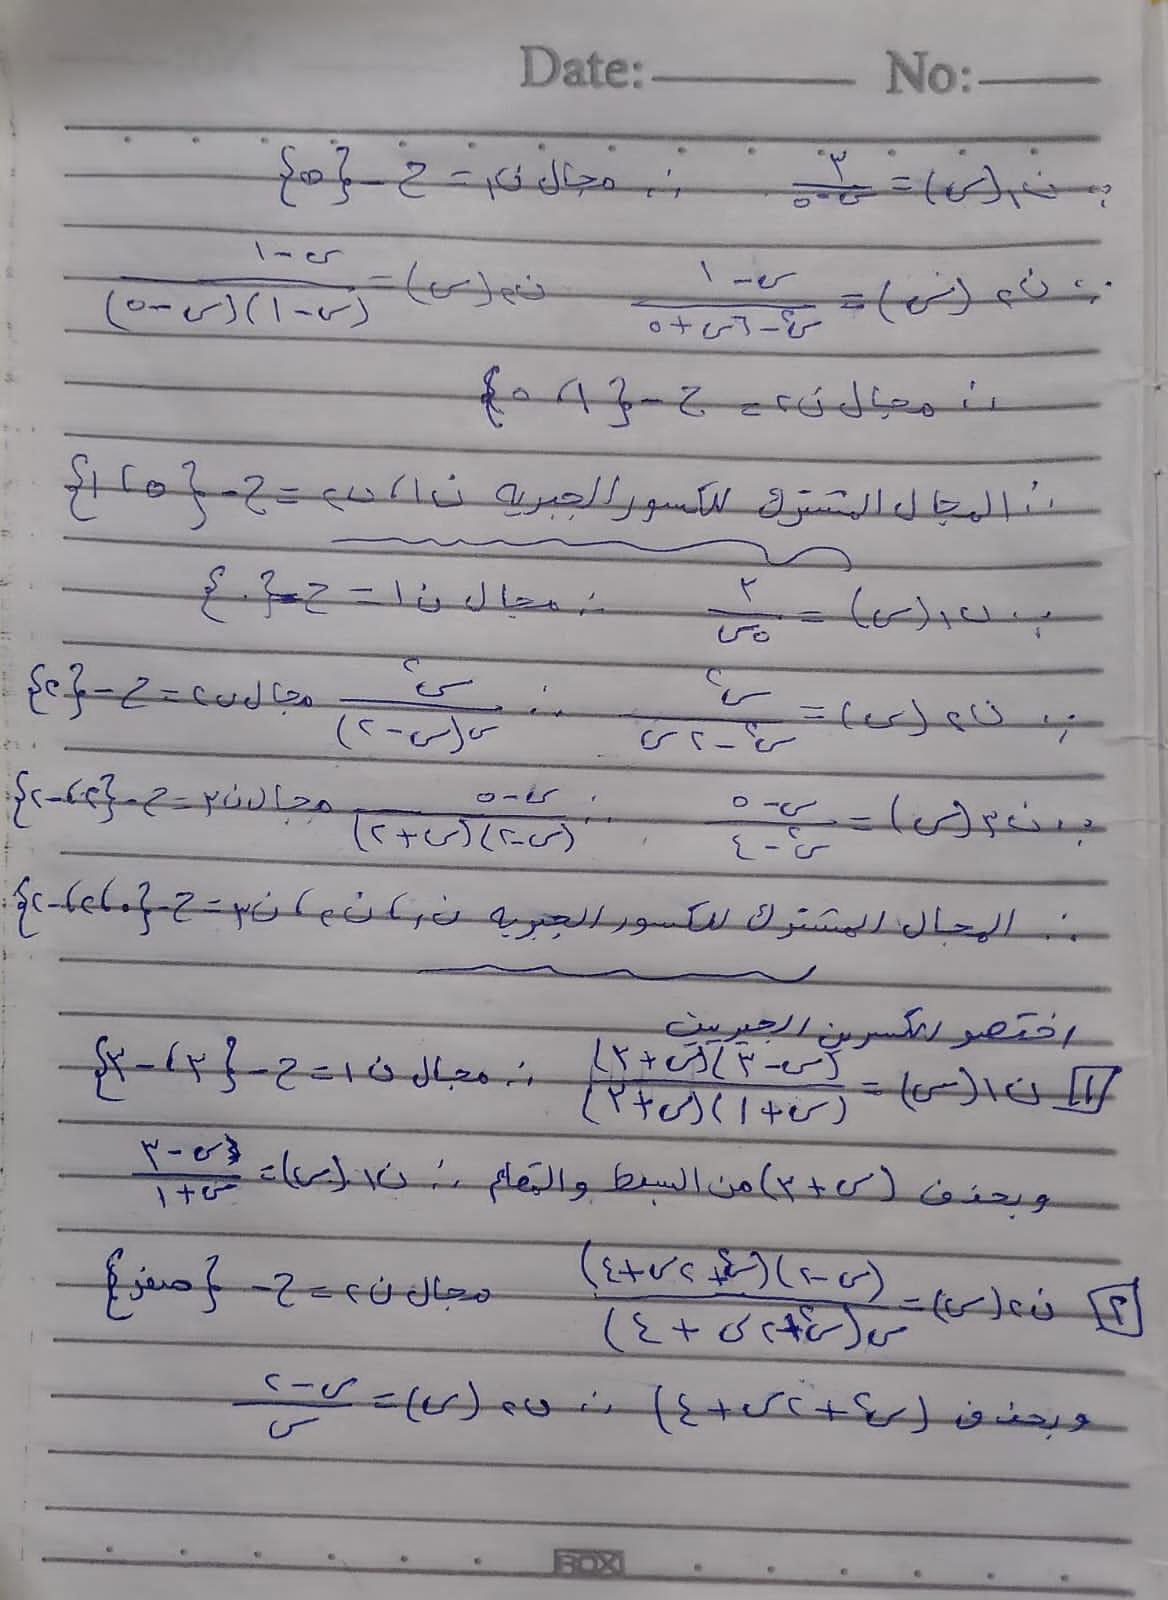 Date: No:
∵ ن١(س) = ٣/(س-٥) ∴ مجال ن١ = ح - {٥}
∵ ن٢(س) = (س-١)/(س²-٦س+٥) ن٢(س) = (س-١)/((س-١)(س-٥))
∴ مجال ن٢ = ح - {١، ٥}
∴ المجال المشترك للكسور الجبريه ن١، ن٢ = ح - {٥، ١}
∵ ن١(س) = ٢/٥س ∴ مجال ن١ = ح - {٠}
∵ ن٢(س) = س²/(س²-٢س) ∴ س²/(س(س-٢)) مجال ن٢ = ح - {٢}
∵ ن٣(س) = (س-٥)/(س²-٤) ∴ (س-٥)/((س-٢)(س+٢)) مجال ن٣ = ح - {٢، -٢}
∴ المجال المشترك للكسور الجبريه ن١، ن٢، ن٣ = ح - {٠، ٢، -٢}
اختصر الكسرين الجبريين
[١] ن١(س) = ((س-٣)(س+٣))/((س+١)(س+٣)) ∴ مجال ن١ = ح - {٣، -٣}
وبحذف (س+٣) من البسط والمقام ∴ ن١(س) = (س-٣)/(س+١)
[٢] ن٢(س) = ((س-٢)(س²+٢س+٤))/(س(س²+٢س+٤)) مجال ن٢ = ح - {صفر}
وبحذف (س²+٢س+٤) ∴ ن٢(س) = (س-٢)/س
ROX